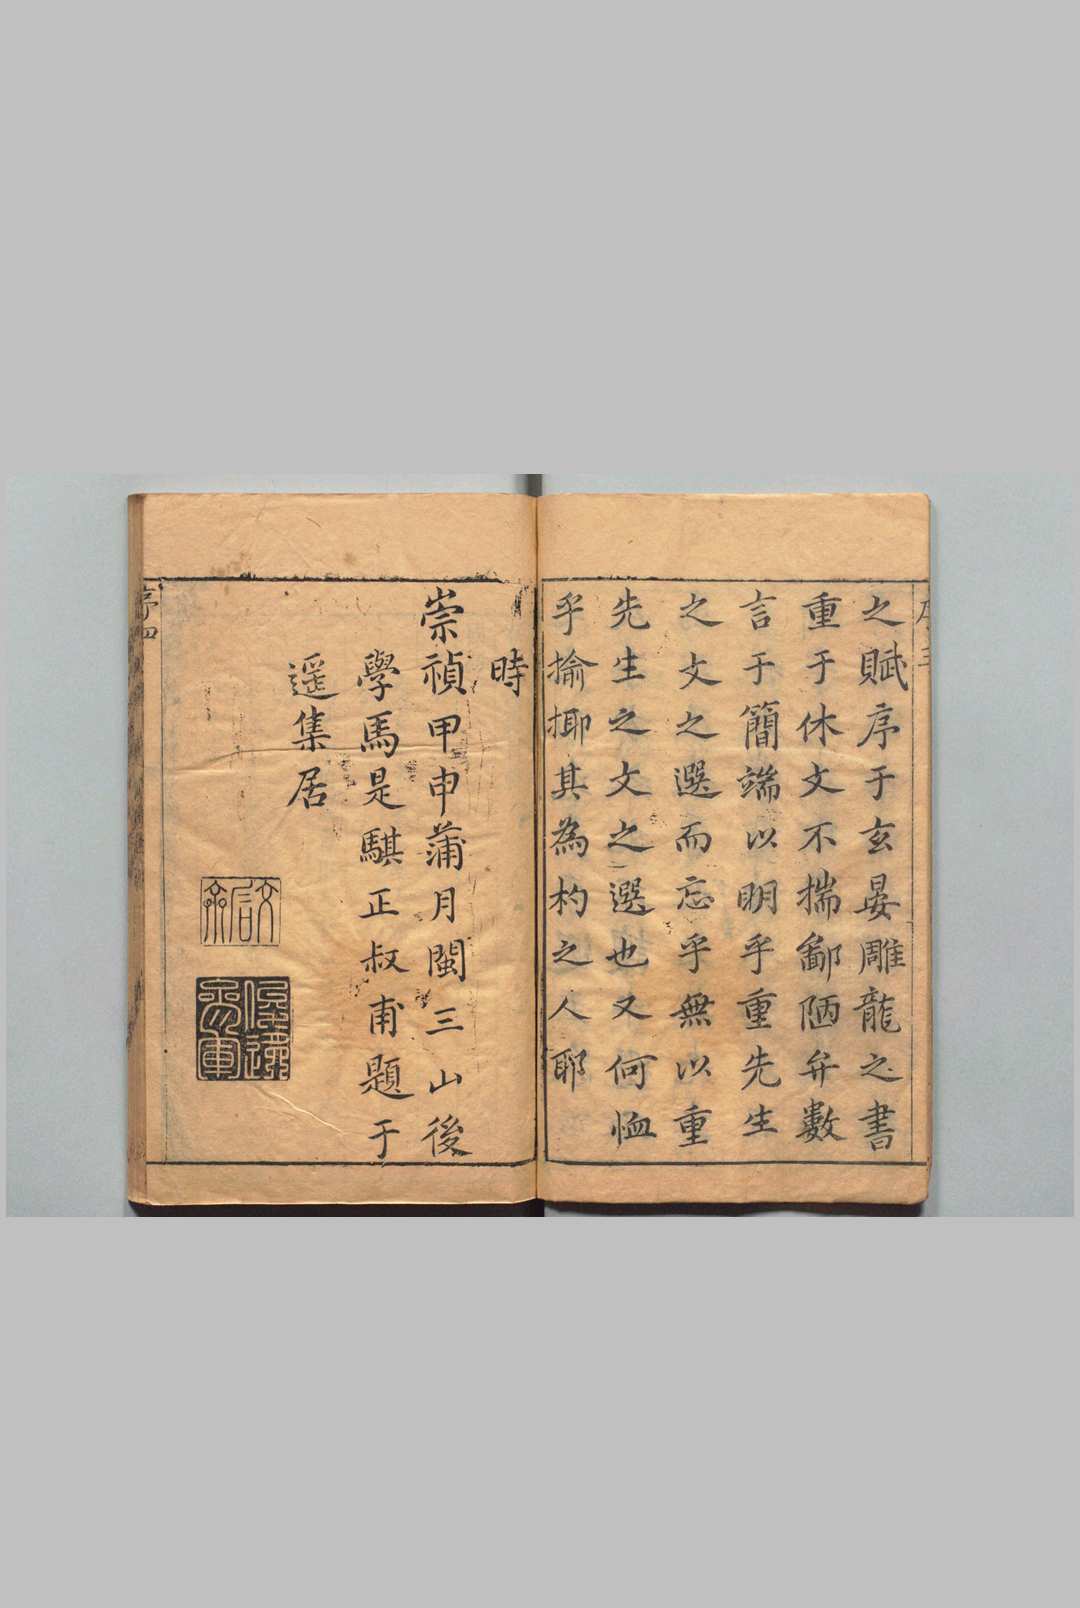 之賦序于玄晏雕龍之書
重于休文不揣鄙陋弁數
言于簡端以明乎重先生
之文之選而忘乎無以重
先生之文之選也又何恤
乎揄揶其為杓之人耶
時
崇禎甲申蒲月閩三山後
學馬是騏正叔甫題于
遥集居
序四